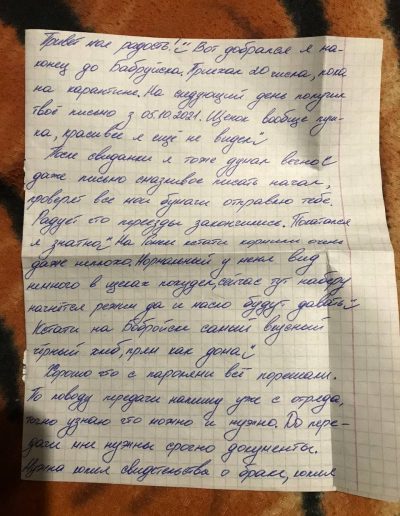 Привет моя радость!
Вот добрался я на-
конец до Бабруйска. Приехал 20 числа, пока
на карантине. На следующий день получил
твоё письмо з 05.10.2021. Щенок вообще пуш-
ка, красивее я ещё не видел
После свидания я тоже думал весною
даже письмо писать начал,
проверят все мои бумаги отправлю тебе.
Радует что переезды закончились. Покатался
я знатно На кстати кормили очень
даже неплохо. Нормальный у меня вид
немного в щеках похудел, сейчас тут наберу
начнётся режим да и масло будут давать
Кстати на Бобруйске самый вкусный
чёрный хлеб, прям как дома.
Хорошо что с паролями всё порешали.
По поводу передачи напишу уже с отряда,
точно узнаю что можно и нужно. До пере-
дачи мне нужны срочно документы.
Нужна копия свидетельства о браке, копия